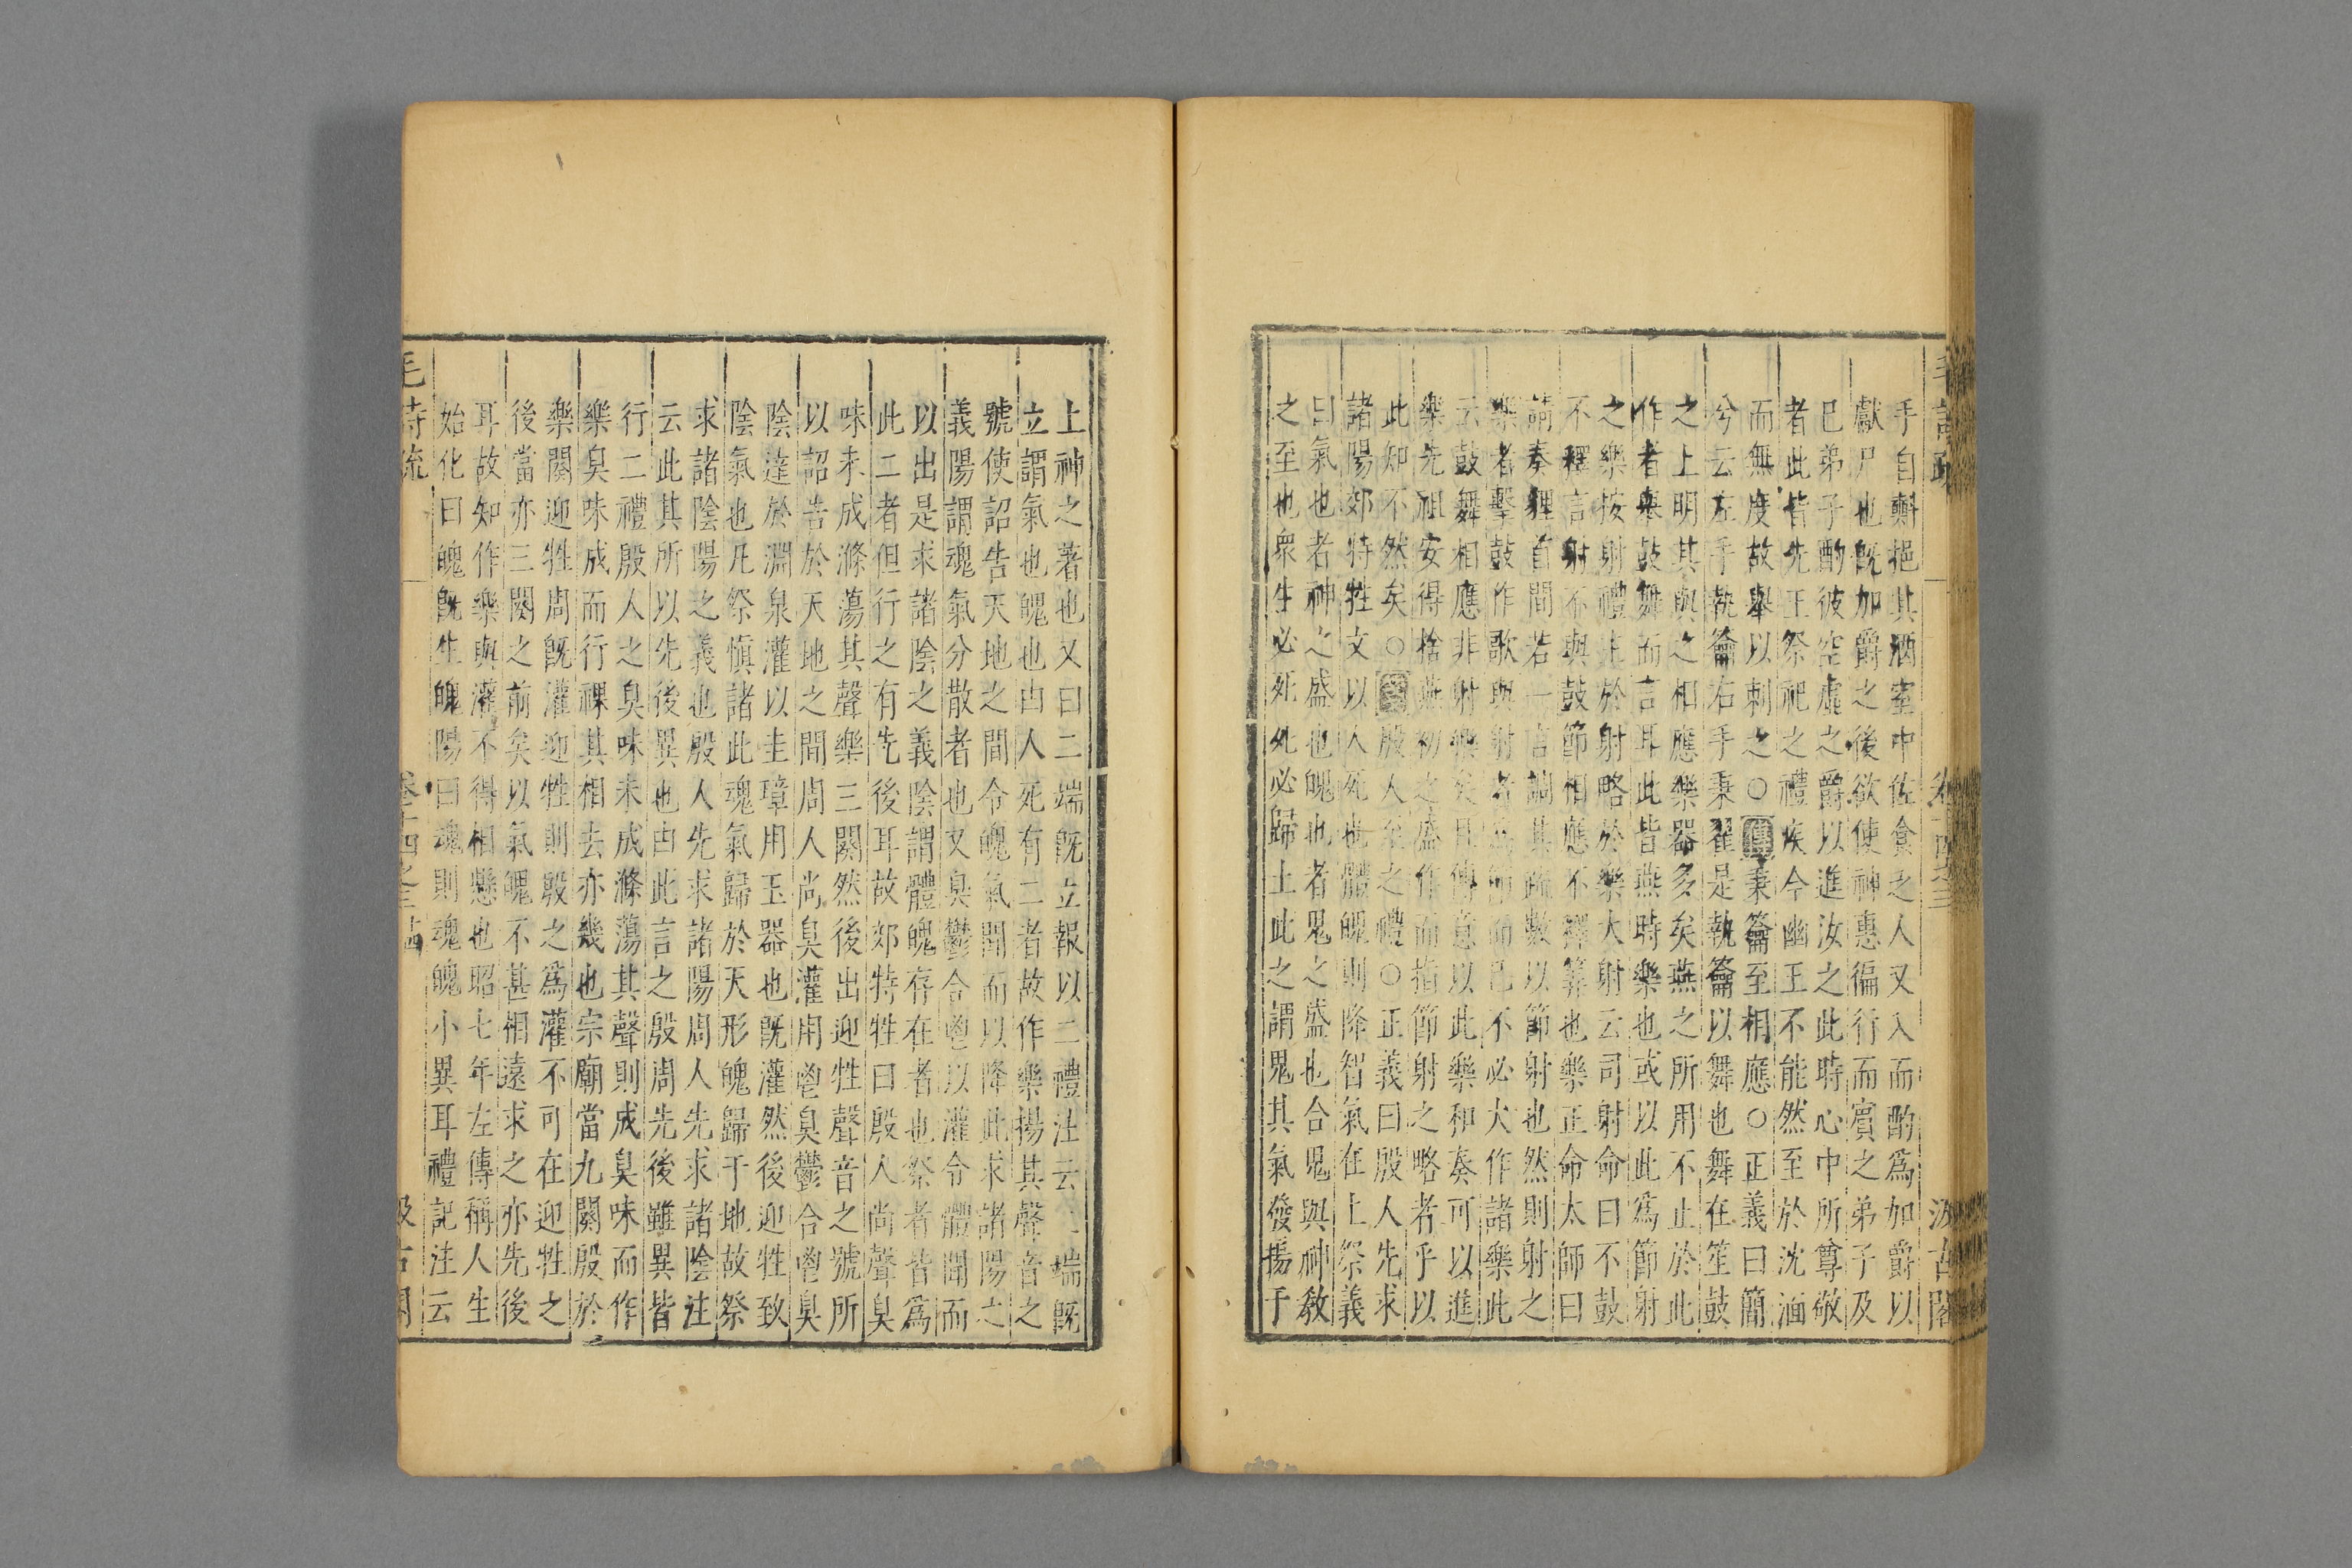 手自㪺挹其酒室中佐食之人又入而酌爲加爵以
獻尸也旣加爵之後欲使神惠徧行而賓之弟子及
巳弟子酌彼空虛之爵以進汝之此時心中所尊敬
者此皆先王祭祀之禮疾今幽王不能然至於沈湎
而無度故舉以刺之○傳秉籥至相應○正義曰簡
兮云左手執籥右手秉翟是執籥以舞也舞在笙鼓
之上明其與之相應樂器多矣燕之所用不止於此
作者舉鼓舞而言耳此皆燕時樂也或以此爲節射
之樂按射禮主於射略於樂大射云司射命曰不鼓
不釋言射不與鼓節相應不釋筭也樂正命太師曰
請奏貍首間若一言調其疏數以節射也然則射之
樂者擊鼓作歌與射者爲節而已不必大作諸樂此
云鼓舞相應非射樂矣且傳意以此樂和奏可以進
樂先祖安得捨燕初之盛作而指節射之略者乎以
此知不然矣○箋殷人至之禮○正義曰殷人先求
諸陽郊特牲文以人死也體魄則降智氣在上祭義
曰氣也者神之盛也魄也者鬼之盛也合鬼與神教
之至也衆生必死死必歸土此之謂鬼其氣發揚于
毛詩疏 卷十四之三 汲古閣
上神之著也又曰二端旣立報以二禮注云二端旣
立謂氣也魄也由人死有二者故作樂揚其聲音之
號使詔告天地之間令魄氣聞而以降此求諸陽之
義陽謂魂氣分散者也又臭鬱合鬯以灌令體聞而
以出是求諸陰之義陰謂體魄存在者也祭者皆爲
此二者但行之有先後耳故郊特牲曰殷人尚聲臭
味未成滌蕩其聲樂三闋然後出迎牲聲音之號所
以詔告於天地之間周人尚臭灌用鬯臭鬱合鬯臭
陰達於淵泉灌以圭璋用玉器也旣灌然後迎牲致
陰氣也凡祭愼諸此魂氣歸於天形魄歸于地故祭
求諸陰陽之義也殷人先求諸陽周人先求諸陰注
云此其所以先後異也由此言之殷周先後雖異皆
行二禮殷人之臭味未成滌蕩其聲則成臭味而作
樂臭味成而行祼其相去亦幾也宗廟當九闋殷於
樂闋迎牲周旣灌迎牲則殷之爲灌不可在迎牲之
後當亦三闋之前矣以氣魄不甚相遠求之亦先後
耳故知作樂與灌不得相懸也昭七年左傳稱人生
始化曰魄旣生魄陽曰魂則魂魄小異耳禮記注云
毛詩疏 卷十四之三 汲古閣